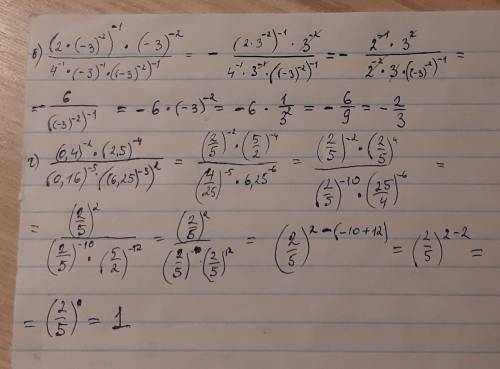 б) ((2·(-3)^-2)^-1·(-3)^-2)/(4^-1·(-3)^-1·((-3)^-2)^-1) = -((2·3^-2)^-1·3^-2)/(4^-1·3^-1·((-3)^-2)^-1) = -(2^-1·3^2)/(2^-2·3·((-3)^-2)^-1) =
= -6/((-3)^-2)^-1 = -6·(-3)^-2 = -6·1/3^2 = -6/9 = -2/3
г) ((0,4)^-2·(2,5)^-4)/((0,16)^-5·((6,25)^-3)^2) = ((2/5)^-2·(5/2)^-4)/((4/25)^-5·6,25^-6) = ((2/5)^-2·(2/5)^4)/((2/5)^-10·(25/4)^-6) =
= (2/5)^2/((2/5)^-10·(5/2)^-12) = (2/5)^2/((2/5)^-10·(2/5)^12) = (2/5)^2-(-10+12) = (2/5)^2-2 =
= (2/5)^0 = 1